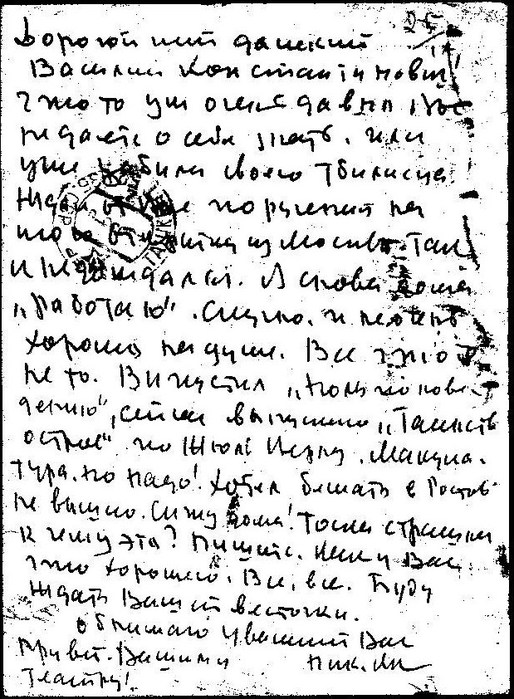 25
Дорогой мой далекий
Василий Константинович!
Что-то уж очень давно Вы
не даете о себе знать. Или
уже забыли своего Тбилисца!
Ждал от Вас поручений на
из Москвы. Так
и не дождался. Я снова дома
„работаю“. Скучно. и не очень
хорошо на душе. Все что-то
не то. Выпустил „Ноль по пове-
дению“, сейчас выпускаю „Таинств
остров“ по Жюль Верну. Макула-
тура. но надо! Хотел бежать в Ростов-
не вышло. Сижу дома! Тоска страшная
к чему это? Пишите. Как у Вас
что хорошего. Все, все. Буду
ждать Вашей весточки.
обнимаю Уважающий Вас
Привет. Вашему Ник.
Театру!